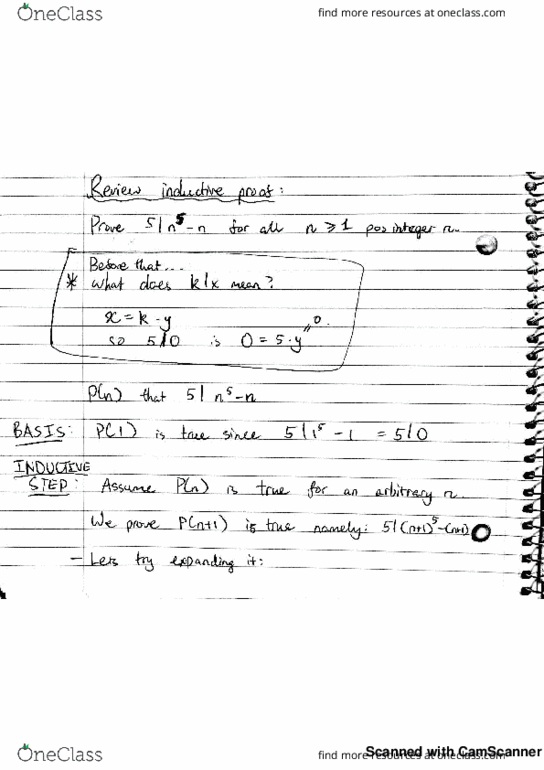 OneClass
find more resources at oneclass.com
Review inductive proof:
Prove 5|n⁵-n for all n ≥ 1 pos integer n.
Before that...
* What does k|x mean?
x = k · y
so 5|0 is 0 = 5 · y = 0
P(n) that 5| n⁵-n
BASIS: P(1) is true since 5|1⁵ - 1 = 5|0
INDUCTIVE
STEP: Assume P(n) is true for an arbitrary n.
We prove P(n+1) is true namely: 5|(n+1)⁵-(n+1)
- Lets try expanding it:
OneClass
find more resources at oneclass.com
Scanned with CamScanner